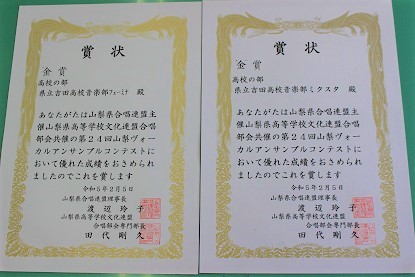 賞状
金賞
高校の部
県立吉田高校音楽部フェーミナ 殿
あなたがたは山梨県合唱連盟主
催山梨県高等学校文化連盟合唱
部会共催の第24回山梨ヴォー
カルアンサンブルコンテストに
おいて優れた成績をおさめられ
ましたのでこれを賞します
令和5年2月5日
山梨県合唱連盟理事長
渡辺玲子
山梨県高等学校文化連盟
合唱部会専門部長
田代剛久
賞状
金賞
高校の部
県立吉田高校音楽部ミクスタ 殿
あなたがたは山梨県合唱連盟主
催山梨県高等学校文化連盟合唱
部会共催の第24回山梨ヴォー
カルアンサンブルコンテストに
おいて優れた成績をおさめられ
ましたのでこれを賞します
令和5年2月5日
山梨県合唱連盟理事長
渡辺玲子
山梨県高等学校文化連盟
合唱部会専門部長
田代剛久